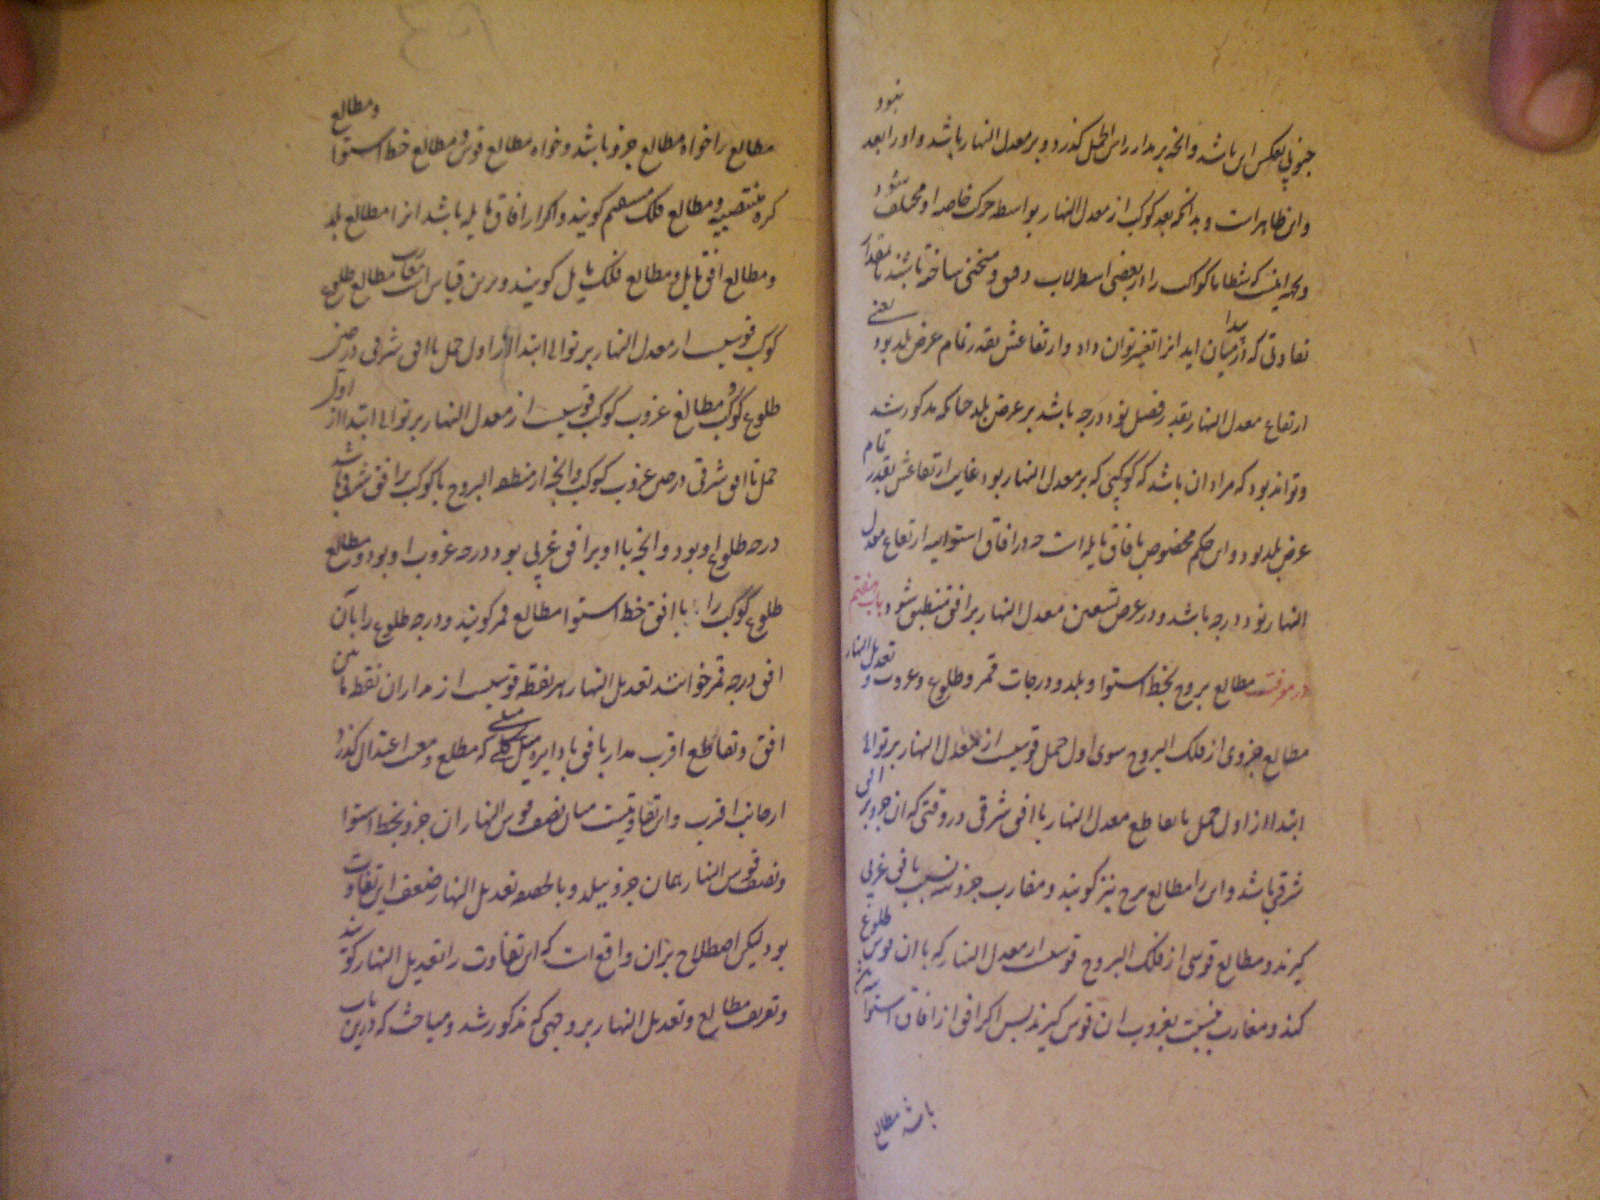 جنوبی بعکس این باشد و انچه بر مدار راس الحمل کذرد و بر معدل النهار باشد و او را بعد نبود
و این ظاهر است و بدانکه بعد کوکب از معدل النهار بواسطه حرکت خاصه او مختلف شود
و لهذا شظایا کواکب را در بعضی اسطرلاب ساخته باشند تا بمقدار
تفاوتی که در میان پیدا اید انرا تغییر توان داد و ارتفاعش بقدر تمام عرض بلد بود یعنی
ارتفاع معدل النهار بقدر فضل نود درجه باشد بر عرض بلد چنانکه مذکور شد
و تواند بود که مراد ان باشد که کوکبی که بر معدل النهار بود غایت ارتفاعش بقدر تمام
عرض بلد بود و این حکم مخصوص بافاق مایله است چه در افاق استوائیه ارتفاع معدل
النهار نود درجه باشد و در عرض تسعین معدل النهار بر افق منطبق شود باب هفتم
در معرفت مطالع بروج بخط استوا و بلد و درجات ممر و طلوع و غروب و تعدیل النهار
مطالع جزوی از فلک البروج سوی اول حمل قوسیست از معدل النهار بر توالی
ابتدا از اول حمل تا تقاطع معدل النهار با افق شرقی در وقتی که ان جزو بر افق
شرقی باشد و این را مطالع برج نیز کویند و مغارب جزو نسبت بافق غربی
کیرند و مطالع قوسی از فلک البروج قوسیست از معدل النهار که با ان قوس طلوع
کند و مغارب نسبت بغروب ان قوس کیرند پس اکر افق از افاق استوائیه
باشد مطالع
مطالع را خواه مطالع جزو باشد و خواه مطالع قوس مطالع خط استوا و مطالع
کره منتصبه و مطالع فلک مستقیم کویند و اکر از افاق مایله باشد انرا مطالع بلد
و مطالع افق مایل و مطالع فلک مایل کویند و برین قیاس است مغارب مطالع طلوع
کوکب قوسیست از معدل النهار بر توالی ابتدا از اول حمل تا افق شرقی در حین
طلوع کوکب و مطالع غروب کوکب قوسیست از معدل النهار بر توالی ابتدا از اول
حمل تا افق شرقی در حین غروب کوکب و انچه از منطقه البروج با کوکب بر افق شرقی باشد
درجه طلوع او بود و انچه با او بر افق غربی بود درجه غروب او بود و مطالع
طلوع کوکب را با افق خط استوا مطالع ممر کویند و درجه طلوع را بان
افق درجه ممر خوانند تعدیل النهار هر نقطه قوسیست از مدار ان نقطه مابین
افق و تقاطع اقرب مدار با افق با دایره میل که مطلع و مغرب اعتدال کذرد
از جانب اقرب و ان تفاوتیست میان نصف قوس النهار ان جزو بخط استوا
و نصف قوس النهار همان جزو ببلد و بالحقیقه تعدیل النهار ضعف این تفاوت
بود لیکن اصطلاح بران واقع است که این تفاوت را تعدیل النهار کویند
و تعریف مطالع و تعدیل النهار بر وجهی که مذکور شد و مباحث که درین باب